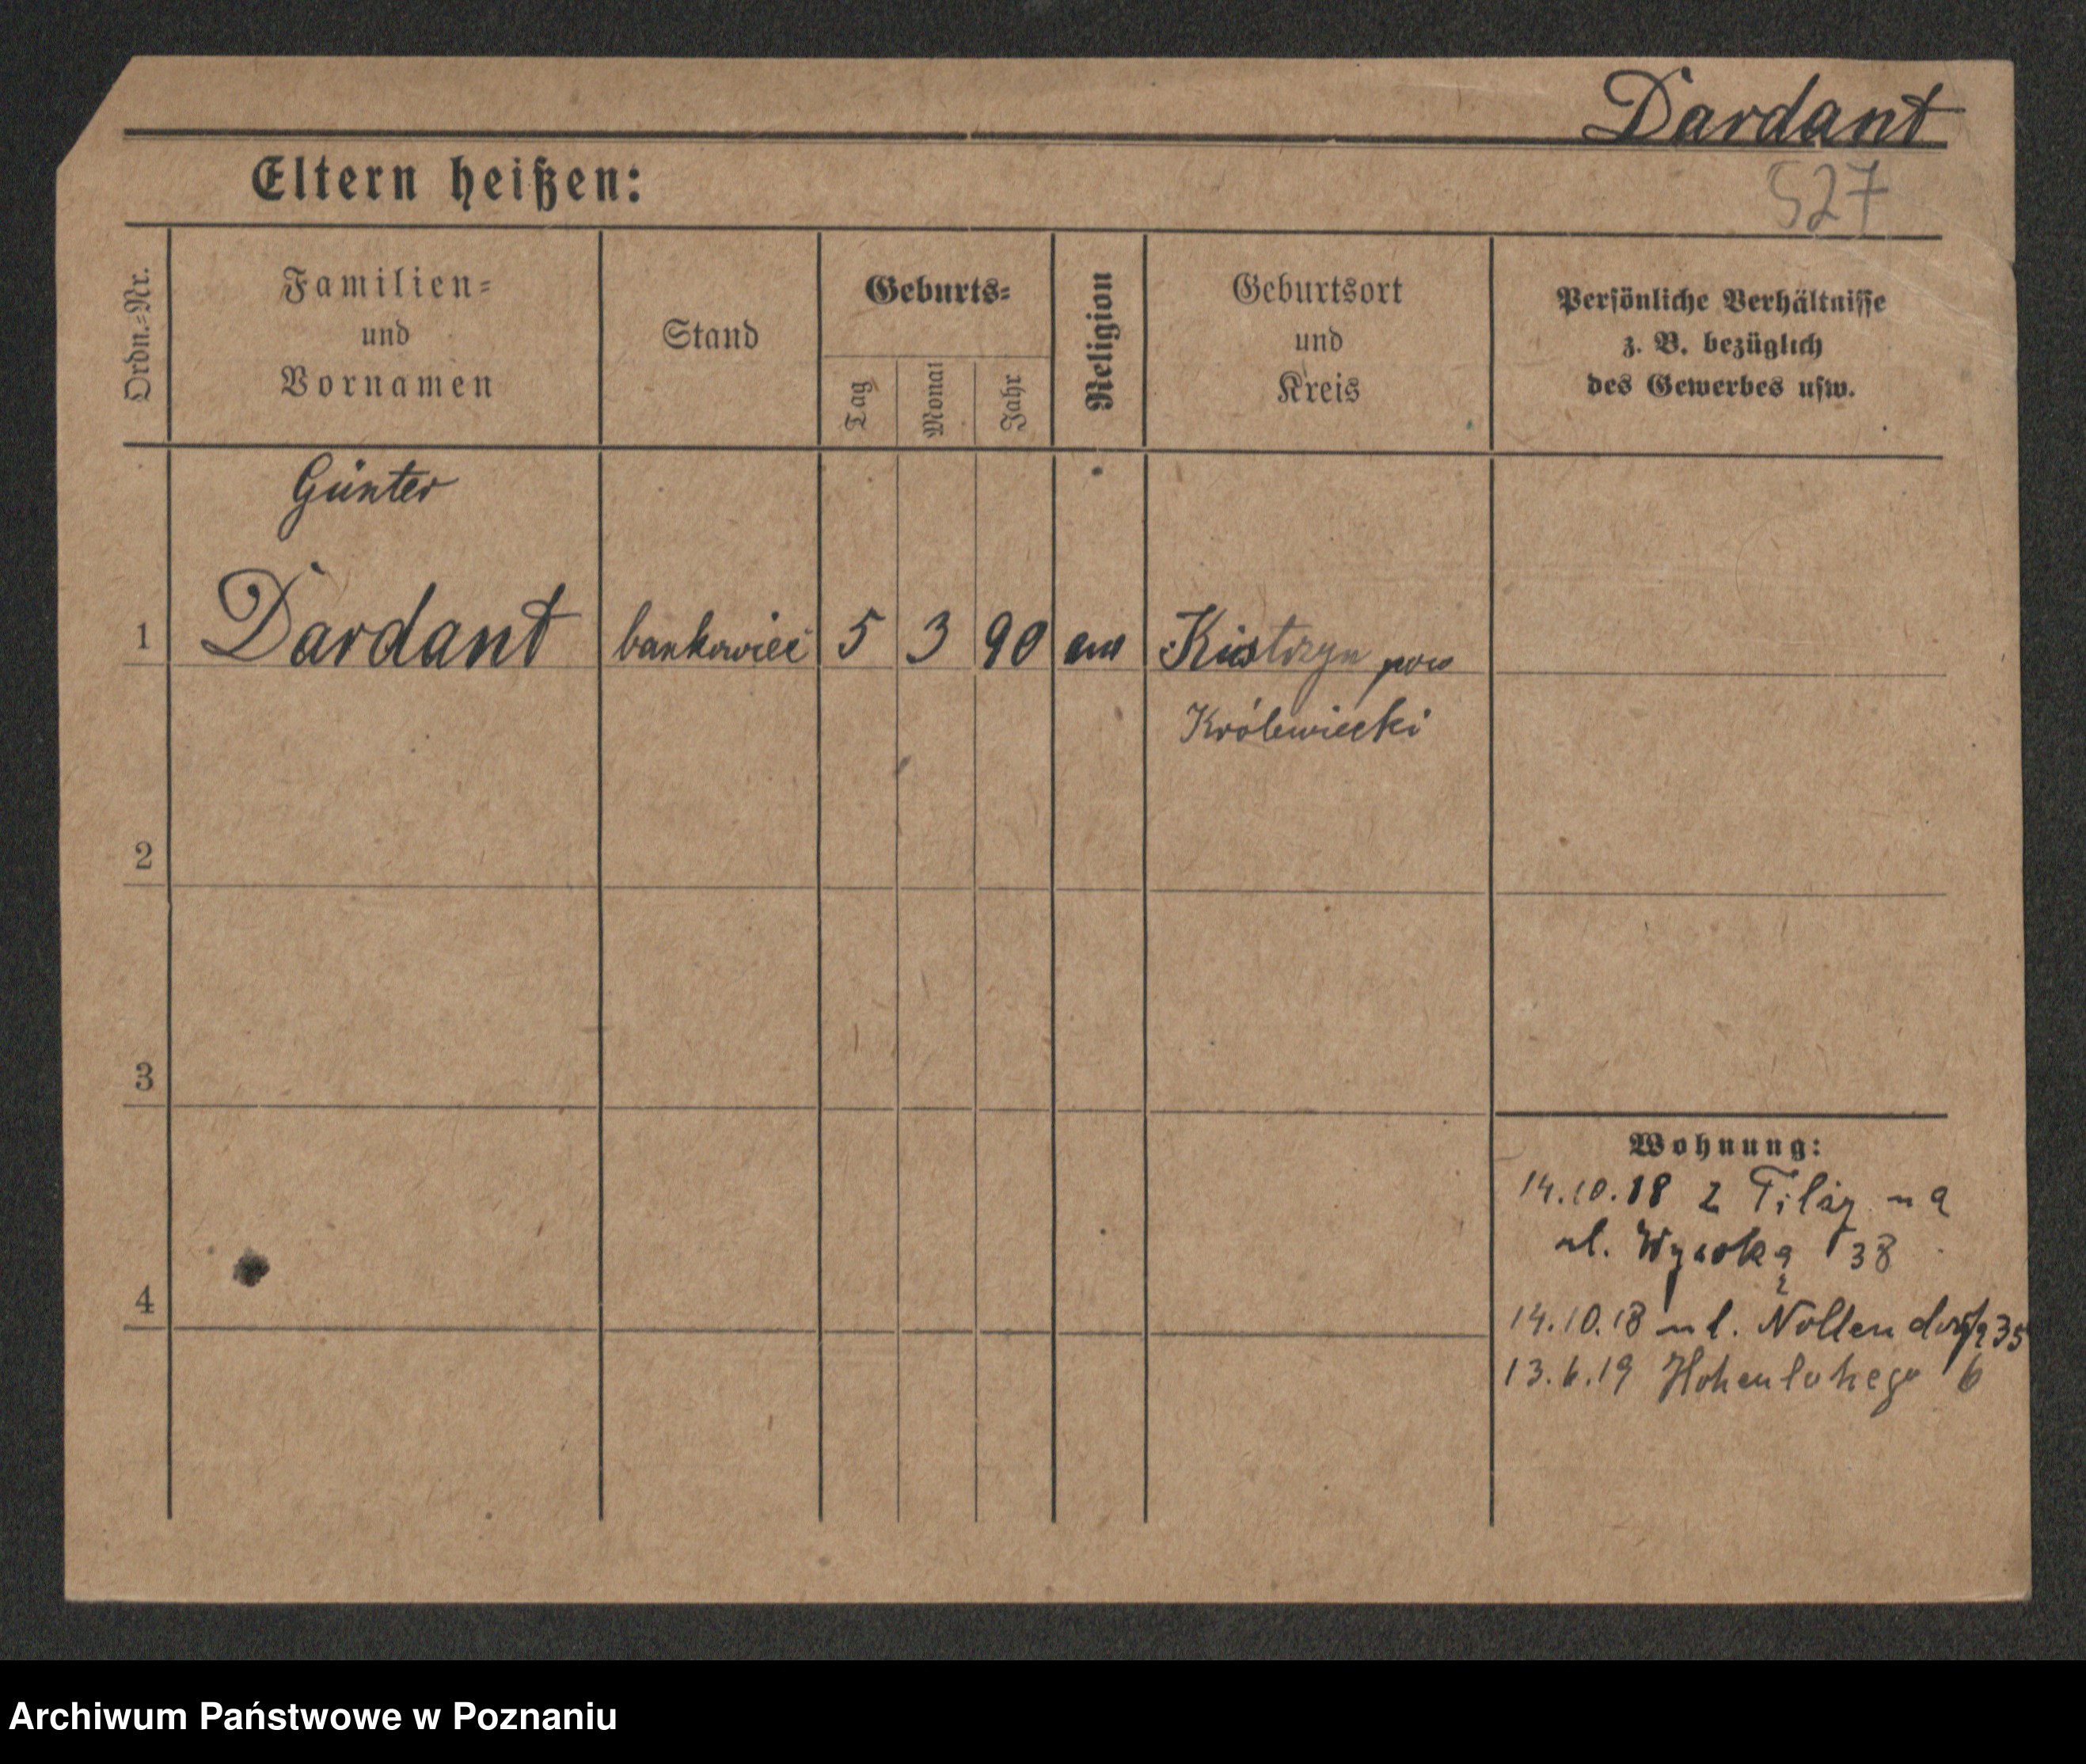 Dardant
Eltern heißen:
527
Ordn.=Nr.
Familien=
und
Vornamen
Stand
Geburts=
Tag
Monat
Jahr
Religion
Geburtsort
und
Kreis
Persönliche Verhältnisse
z. B. bezüglich
des Gewerbes usw.
Günter
1 Dardant bankowiec 5 3 90 ew Kistrzyn pow
Królewiecki
2
3
4
Wohnung:
14.10.18 z Tilzy na
ul. Wysoką 38
14.10.18 ul. Nollendorfa 35
13.6.19 Hohenlohego 6
Archiwum Państwowe w Poznaniu